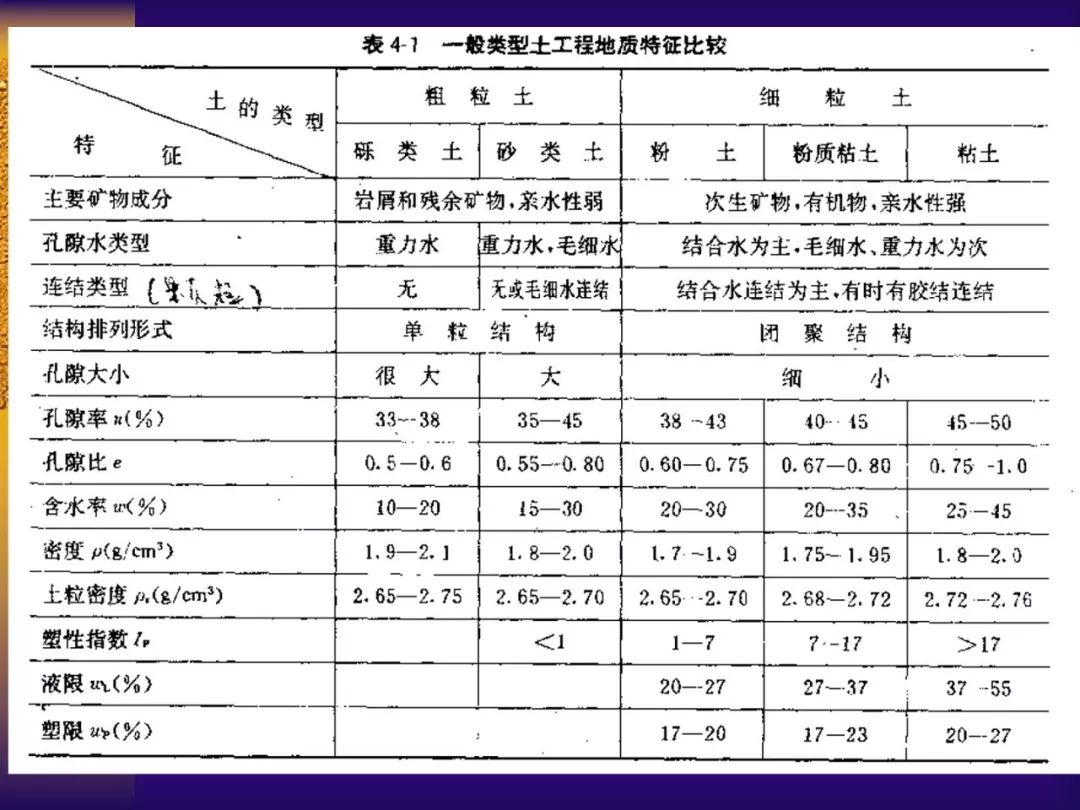 表 4-1 一般类型土工程地质特征比较
土的类型 粗粒土 细粒土
特征 砾类土 砂类土 粉土 粉质粘土 粘土
主要矿物成分 岩屑和残余矿物,亲水性弱 次生矿物,有机物,亲水性强
孔隙水类型 重力水 重力水,毛细水 结合水为主,毛细水、重力水为次
连结类型 无 无或毛细水连结 结合水连结为主,有时有胶结连结
结构排列形式 单粒结构 团聚结构
孔隙大小 很大 大 细小
孔隙率 n(%) 33—38 35—45 38—43 40—45 45—50
孔隙比 e 0.5—0.6 0.55—0.80 0.60—0.75 0.67—0.80 0.75—1.0
含水率 w(%) 10—20 15—30 20—30 20—35 25—45
密度 ρ(g/cm³) 1.9—2.1 1.8—2.0 1.7—1.9 1.75—1.95 1.8—2.0
土粒密度 ρs(g/cm³) 2.65—2.75 2.65—2.70 2.65—2.70 2.68—2.72 2.72—2.76
塑性指数 Ip <1 1—7 7—17 >17
液限 wL(%) 20—27 27—37 37—55
塑限 wp(%) 17—20 17—23 20—27